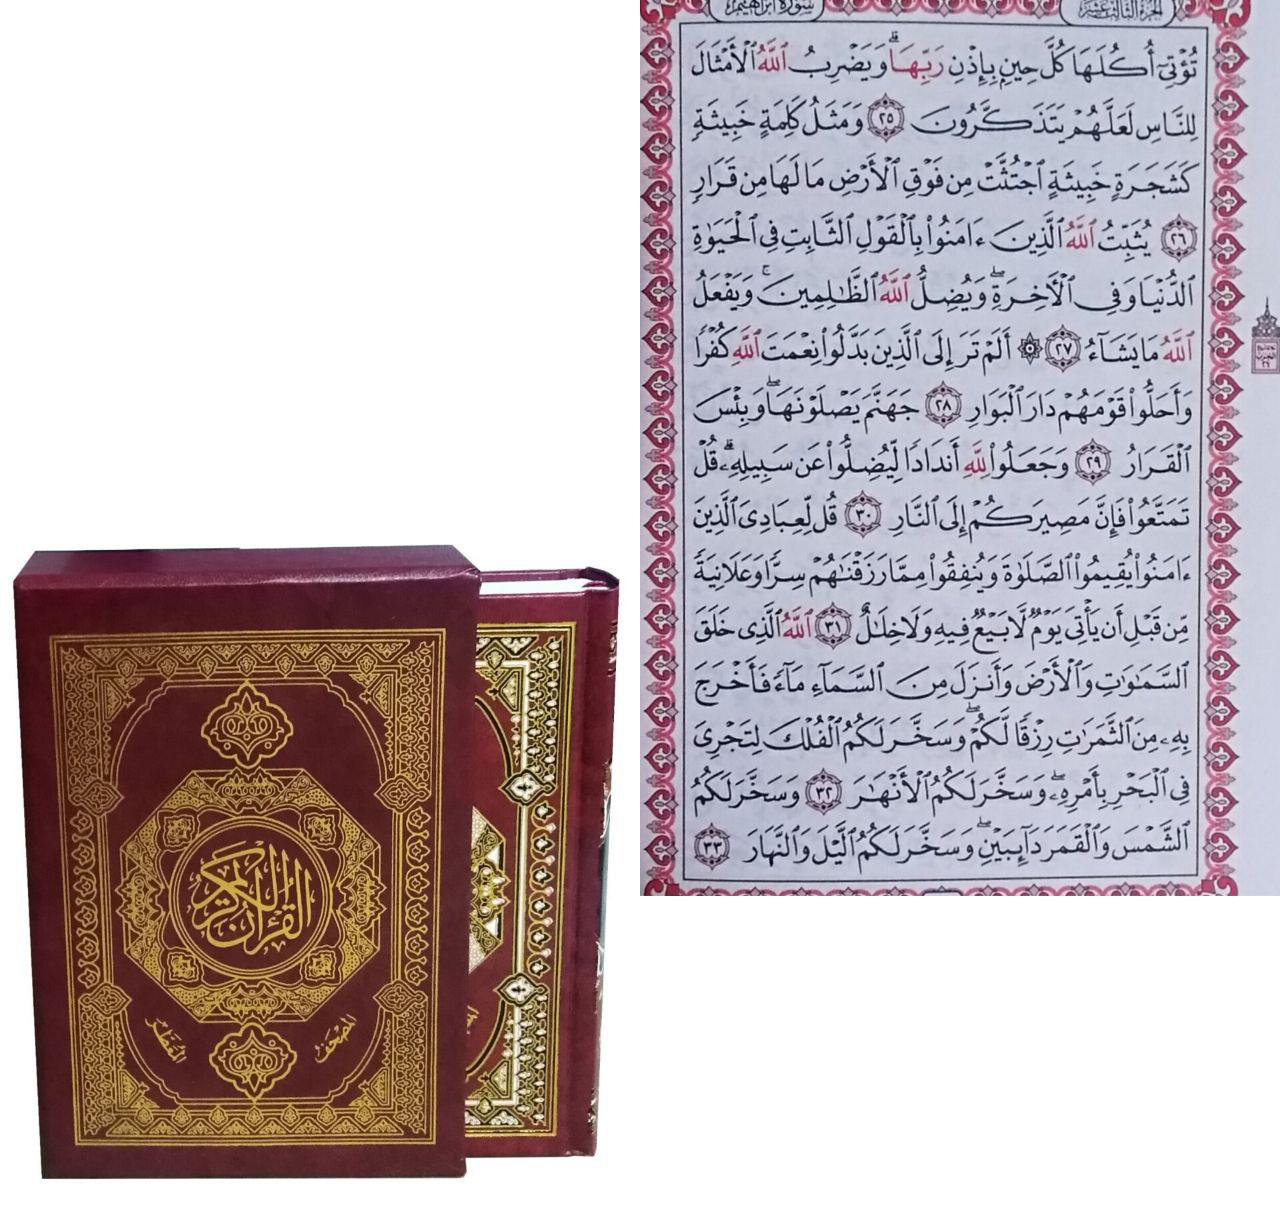 سورة إبراهيم
الجزء الثالث عشر
تُؤْتِىٓ أُكُلَهَا كُلَّ حِينٍۭ بِإِذْنِ رَبِّهَاۗ وَيَضْرِبُ ٱللَّهُ ٱلْأَمْثَالَ
لِلنَّاسِ لَعَلَّهُمْ يَتَذَكَّرُونَ ٢٥ وَمَثَلُ كَلِمَةٍ خَبِيثَةٍ
كَشَجَرَةٍ خَبِيثَةٍ ٱجْتُثَّتْ مِن فَوْقِ ٱلْأَرْضِ مَا لَهَا مِن قَرَارٍ
٢٦ يُثَبِّتُ ٱللَّهُ ٱلَّذِينَ ءَامَنُوا۟ بِٱلْقَوْلِ ٱلثَّابِتِ فِى ٱلْحَيَوٰةِ
ٱلدُّنْيَا وَفِى ٱلْأَخِرَةِۖ وَيُضِلُّ ٱللَّهُ ٱلظَّـٰلِمِينَۚ وَيَفْعَلُ
ٱللَّهُ مَا يَشَآءُ ٢٧ ۞ أَلَمْ تَرَ إِلَى ٱلَّذِينَ بَدَّلُوا۟ نِعْمَتَ ٱللَّهِ كُفْرًا
وَأَحَلُّوا۟ قَوْمَهُمْ دَارَ ٱلْبَوَارِ ٢٨ جَهَنَّمَ يَصْلَوْنَهَاۖ وَبِئْسَ
ٱلْقَرَارُ ٢٩ وَجَعَلُوا۟ لِلَّهِ أَندَادًا لِّيُضِلُّوا۟ عَن سَبِيلِهِۦۗ قُلْ
تَمَتَّعُوا۟ فَإِنَّ مَصِيرَكُمْ إِلَى ٱلنَّارِ ٣٠ قُل لِّعِبَادِىَ ٱلَّذِينَ
ءَامَنُوا۟ يُقِيمُوا۟ ٱلصَّلَوٰةَ وَيُنفِقُوا۟ مِمَّا رَزَقْنَـٰهُمْ سِرًّا وَعَلَانِيَةً
مِّن قَبْلِ أَن يَأْتِىَ يَوْمٌ لَّا بَيْعٌ فِيهِ وَلَا خِلَـٰلٌ ٣١ ٱللَّهُ ٱلَّذِى خَلَقَ
ٱلسَّمَـٰوَٰتِ وَٱلْأَرْضَ وَأَنزَلَ مِنَ ٱلسَّمَآءِ مَآءً فَأَخْرَجَ
بِهِۦ مِنَ ٱلثَّمَرَٰتِ رِزْقًا لَّكُمْۖ وَسَخَّرَ لَكُمُ ٱلْفُلْكَ لِتَجْرِىَ
فِى ٱلْبَحْرِ بِأَمْرِهِۦۖ وَسَخَّرَ لَكُمُ ٱلْأَنْهَـٰرَ ٣٢ وَسَخَّرَ لَكُمُ
ٱلشَّمْسَ وَٱلْقَمَرَ دَآئِبَيْنِۖ وَسَخَّرَ لَكُمُ ٱلَّيْلَ وَٱلنَّهَارَ ٣٣
القرآن الكريم
المصحف
المعطر